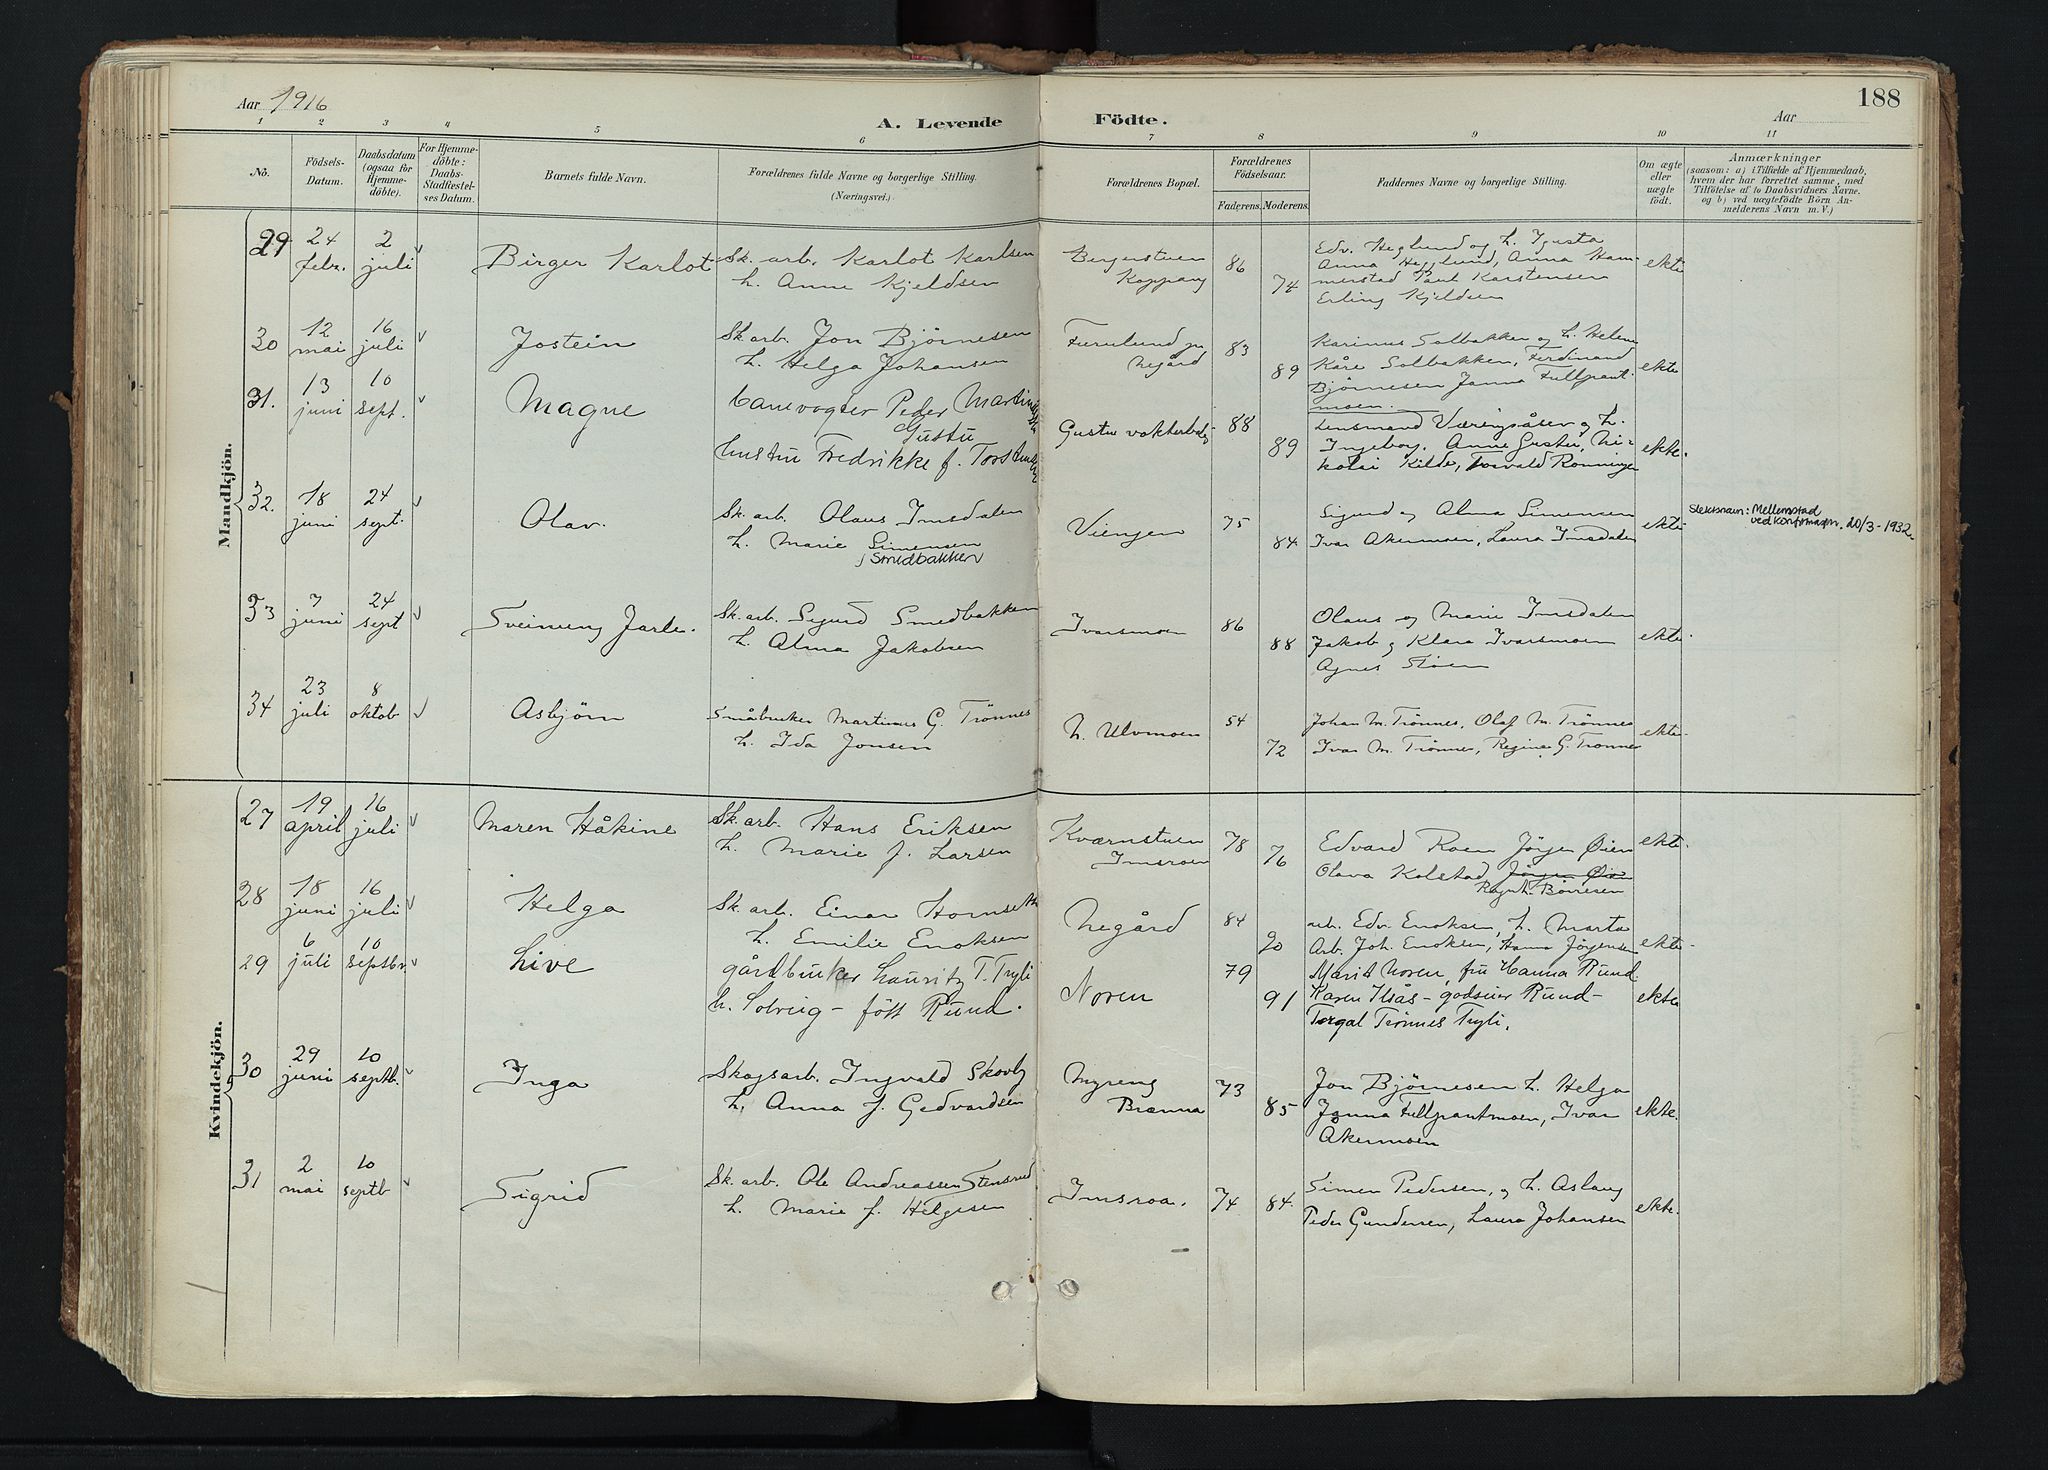 Aar 1916
A. Levende Födte.
188
Aar
1 2 3 4 5 6 7 8 9 10 11
No.
Födsels-
Datum.
Daabsdatum
(ogsaa for
Hjemme-
döbte).
For Hjemme-
döbte:
Daabs-
Stadfæstel-
ses Datum.
Barnets fulde Navn.
Forældrenes fulde Navne og borgerlige Stilling.
(Næringsvei.)
Forældrenes Bopæl.
Forældrenes
Födselsaar.
Faderens. Moderens.
Faddernes Navne og borgerlige Stilling.
Om ægte
eller
uægte
födt.
Anmærkninger
(saasom: a) i Tilfælde af Hjemmedaab,
hvem der har forrettet samme, med
Tilföielse af to Daabsvidners Navne.
og b) ved uægtefödte Börn An-
melderens Navn m. V.)
Mandkjön.
29 24 febr. 2 juli v Birger Karlot
Sk. arb. Karlot Karlsen
h. Anne Kjeldsen
Bergerstuen
Koppang
86 74
Edv. Heglund og h. Gusta
Anna Heglund, Anna Ham-
merstad Paul Karstensen
Erling Kjeldsen
ekte
30 12 mai 16 juli v Jostein
Sk. arb. Jon Bjørnesen
h. Helga Johansen
Furulund
Negård
83 89
Karinus Solbakken og h. Helene
Kåre Solbakken, Ferdinand
Bjørnesen Janna Fullpant-
moen.
ekte
31. 13 juni 10 sept. v Magne
banevogter Peder Martin
Gustu
hustru Fredrikke f. Torst
Gustu vokterbolig
88 89
Lensmand Værenpåsen og h.
Ingeborg. Anne Gustu, Ni-
kolai Kilde, Torvald Rønningen
ekte.
32. 18 juni 24 sept. v Olav.
Sk. arb. Olaus Imsdalen
h. Marie Simensen
f Smedbakken
Viengen
75 84
Sigurd og Alma Simensen
Ivar Akermoen, Laura Imsdalen
ekte
Slektsnavn: Mellemstad
ved konfirmasjon. 20/3-1932.
33 7 juni 24 sept v Sveinung Jarle.
Sk. arb. Sigurd Smedbakken
h. Alma Jakobsen
Ivarsmoen
86 88
Olaus og Marie Imsdalen
Jakob og Klara Ivarsmoen
Agnes Støen
ekte.
34 23 juli 8 oktob v Asbjørn
Småbruker Martinus G. Trønnes
h. Ida Jonsen
N. Ulvmoen
54 72
Johan M. Trønnes, Olaf M. Trønnes
Ivar M. Trønnes, Regine G. Trønnes
ekte.
Kvindekjön.
27 19 april 16 juli v Maren Håkine
Sk. arb. Hans Eriksen
h. Marie f. Larsen
Kværnstuen
Imsroen
78 76
Edvard Roen Jörgen Øien
Olava Kolstad Jörgen Øien
Ragnh. Børresen
ekte.
28 18 juni 16 juli v Helga
Sk. arb. Einar Hornseth
h. Emilie Enoksen
Negård
84 90
arb. Edv. Enoksen, h. Marta
Arb. Joh. Enoksen, Hanna Jørgensen
ekte
29 6 juli 10 septbr v Live
gårdbruker Lauritz T. Tryli
h. Solveig - født Rund.
Noren
79 91
Marit Noren, fru Hanna Rund
Karen Ilsås - godseier Rund -
Torgal Trønnes Tryli.
ekte
30 29 juni 10 septb. v Inga
Skogsarb. Ingvald Skovly
h. Anna f. Gedvardsen
Myreng
Brænna
73 85
Jon Bjørnesen h. Helga
Janna Fullpantmoen, Ivar
Åkermoen
ekte.
31 2 mai 10 septb v Sigrid
Sk. arb. Ole Andreassen Stensrud
h. Marie f. Helgesen
Imsroa.
74 84.
Simen Pedersen, og h. Aslaug
Peder Gundersen, Laura Johansen
ekte.